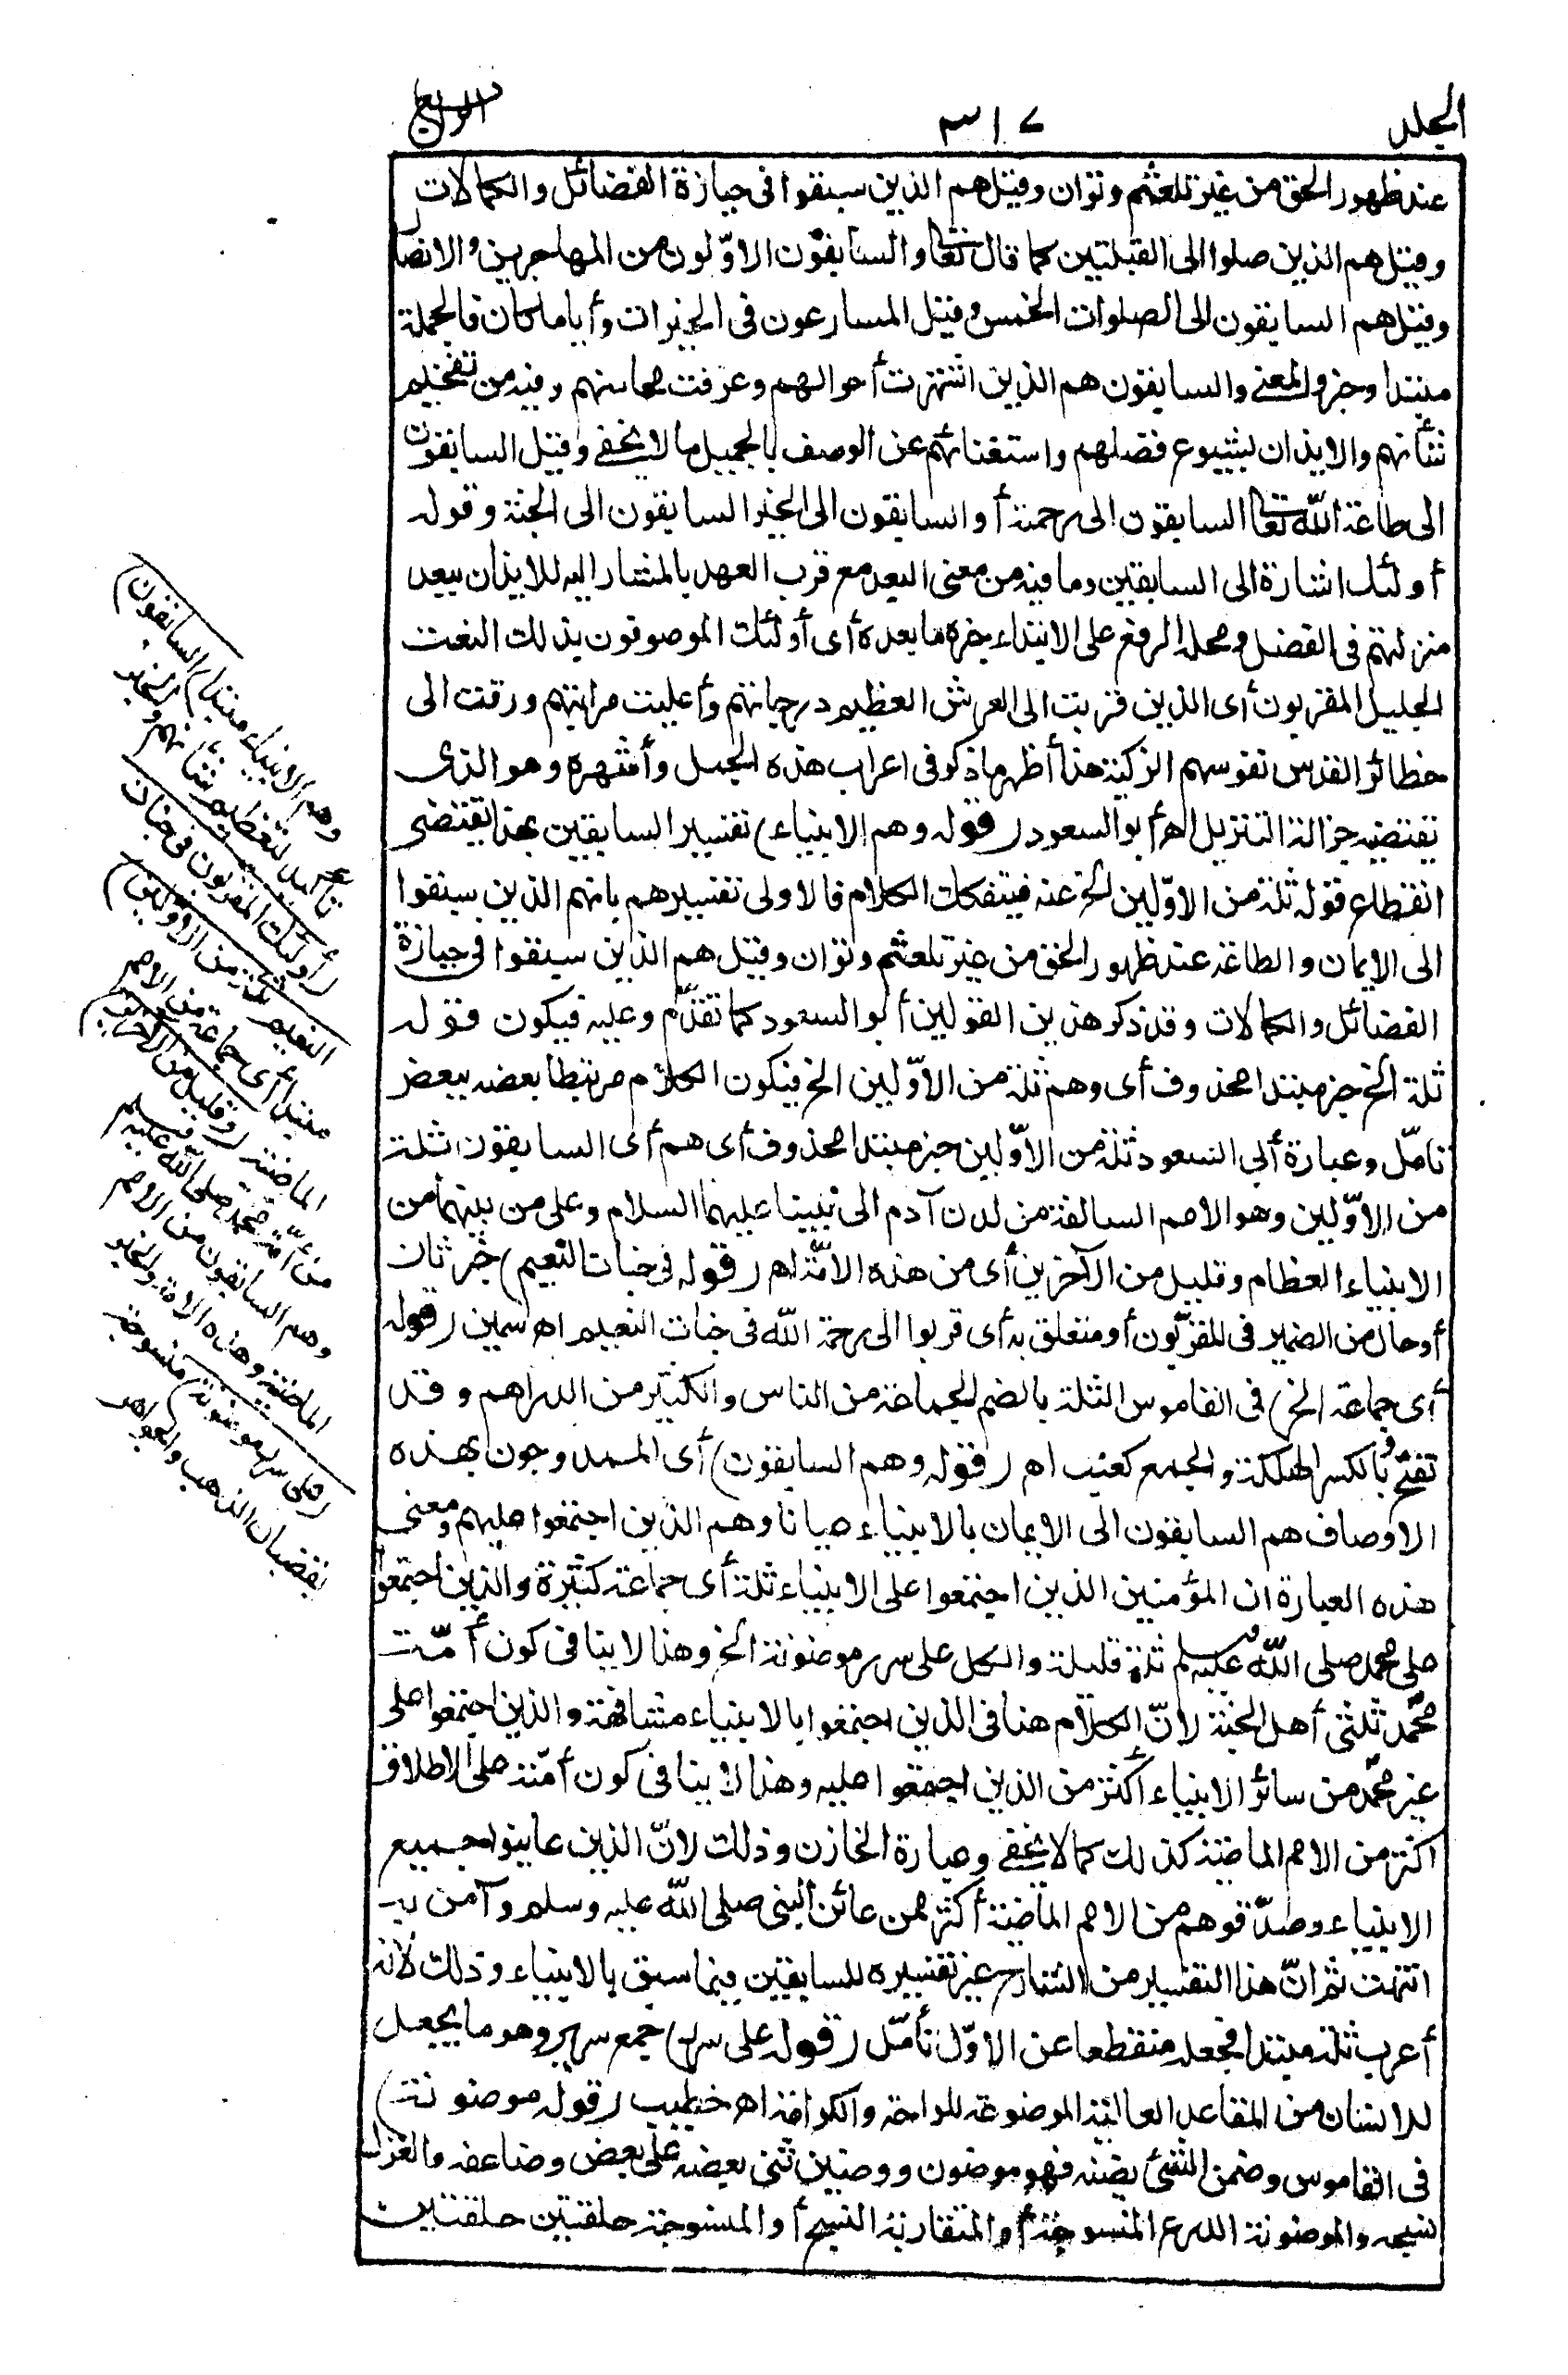 المجلد
٣١٧
الرابع
عند ظهور الحق من غير تلعثم وتوان وقيل هم الذين سبقوا فى حيازة الفضائل والكمالات
وقيل هم الذين صلوا الى القبلتين كما قال تعالى والسابقون الاوّلون من المهاجرين والانصار
وقيل هم السابقون الى الصلوات الخمس وقيل المسارعون فى الخيرات وأياما كان فالجملة
مبتدا وخبر والمعنى والسابقون هم الذين اشتهرت أحوالهم وعرفت محاسنهم وفيه من تفخيم
شأنهم والايذان بشيوع فضلهم واستغنائهم عن الوصف بالجميل ما لا يخفى وقيل السابقون
الى طاعة الله تعالى السابقون الى رحمته أو السابقون الى الخير السابقون الى الجنة وقوله
أولئك اشارة الى السابقين وما فيه من معنى البعد مع قرب العهد بالمشار اليه للايذان ببعد
منزلتهم فى الفضل ومحله الرفع على الابتداء خبره ما بعده أى أولئك الموصوفون بذلك النعت
الجليل المقربون أى الذين قربت الى العرش العظيم درجاتهم وأعليت مراتبهم ورقت الى
حظائر القدس نفوسهم الزكية هذا أظهر ما ذكر فى اعراب هذه الجمل وأشهره وهو الذى
تقتضيه جزالة التنزيل اه أبو السعود (قوله وهم الانبياء) تفسير السابقين بهذا يقتضى
انقطاع قوله ثلة من الاوّلين الخ عنه فيتفكك الكلام فالاولى تفسيرهم بانهم الذين سبقوا
الى الايمان والطاعة عند ظهور الحق من غير تلعثم وتوان وقيل هم الذين سبقوا فى حيازة
الفضائل والكمالات وقد ذكر هذين القولين أبو السعود كما تقدّم وعليه فيكون قوله
ثلة الخ خبر مبتدا محذوف أى وهم ثلة من الاوّلين الخ فيكون الكلام مرتبطا بعضه ببعض
تامّل وعبارة أبى السعود ثلة من الاوّلين خبر مبتدا محذوف أى هم أى السابقون ثلة
من الاوّلين وهو الامم السالفة من لدن آدم الى نبينا عليهما السلام وعلى من بينهما من
الانبياء العظام وقليل من الآخرين أى من هذه الامّة اه (قوله فى جنات النعيم) خبر ثان
أو حال من الضمير فى المقرّبون أو متعلق به أى قربوا الى رحمة الله فى جنات النعيم اه سمين (قوله
أى جماعة الخ) فى القاموس الثلة بالضم الجماعة من الناس والكثير من الدراهم وقد
تفتح وبالكسر الهلكة والجمع كعنب اه (قوله وهم السابقون) أى الممدوحون بهذه
الاوصاف هم السابقون الى الايمان بالانبياء عيانا وهم الذين اجتمعوا عليهم ومعنى
هذه العبارة ان المؤمنين الذين اجتمعوا على الانبياء ثلة أى جماعة كثيرة والذين اجتمعوا
على محمد صلى الله عليه وسلم ثلة قليلة والكل على سرر موضونة الخ وهذا لا ينافى كون أمّة
محمّد ثلثى أهل الجنة لانّ الكلام هنا فى الذين اجتمعوا بالانبياء مشافهة والذين اجتمعوا على
غير محمّد من سائر الانبياء أكثر من الذين اجتمعوا عليه وهذا لا ينافى كون أمّته على الاطلاق
اكثر من الامم الماضية كذلك كما لا يخفى وعبارة الخازن وذلك لانّ الذين عاينوا جميع
الانبياء وصدّقوهم من الامم الماضية أكثر ممن عاين النبى صلى الله عليه وسلم وآمن به
انتهت ثم انّ هذا التفسير من الشارح غير تفسيره للسابقين فيما سبق بالانبياء وذلك لانه
أعرب ثلة مبتدا فجعله منقطعا عن الاوّل تأمّل (قوله على سرر) جمع سرير وهو ما يجعل
للانسان من المقاعد العالية الموضوعة للراحة والكرامة اه خطيب (قوله موضونة)
فى القاموس وضن الشئ يضنه فهو موضون ووضين ثنى بعضه على بعض وضاعفه والغزل
نسجه والموضونة الدرع المنسوجة أو المتقاربة النسج أو المنسوجة حلقتين حلقتين
وهم الانبياء مبتدا (السابقون)
تأكيد لتعظيم شأنهم والخبر
(أولئك المقربون فى جنات
النعيم ثلة من الاوّلين)
مبتدأ أى جماعة من الامم
الماضية (وقليل من الآخرين)
من أمّة محمد صلى الله عليه وسلم
وهم السابقون من الامم
الماضية وهذه الامة والخبر
(على سرر موضونة) منسوجة
بقضبان الذهب والجواهر